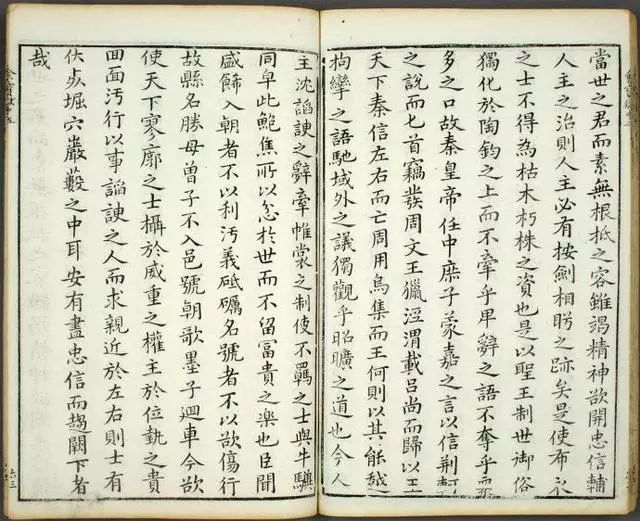 當世之君而素無根柢之容雖竭精神欲開忠信輔
人主之治則人主必有按劍相眄之跡矣是使布衣
之士不得為枯木朽株之資也是以聖王制世御俗
獨化於陶鈞之上而不牽乎卑辭之語不奪乎眾
多之口故秦皇帝任中庶子蒙嘉之言以信荊軻
之說而匕首竊發周文王獵涇渭載呂尚而歸以王
天下秦信左右而亡周用烏集而王何則以其能越
拘攣之語馳域外之議獨觀乎昭曠之道也今人
主沈諂諛之辭牽帷裳之制使不羈之士與牛驥
同皁此鮑焦所以忿於世而不留富貴之樂也臣聞
盛飾入朝者不以利汚義砥礪名號者不以欲傷行
故縣名勝母曾子不入邑號朝歌墨子迴車今欲
使天下寥廓之士攝於威重之權主於位埶之貴
回面汚行以事諂諛之人而求親近於左右則士有
伏死堀穴巖藪之中耳安有盡忠信而趨闕下者
哉